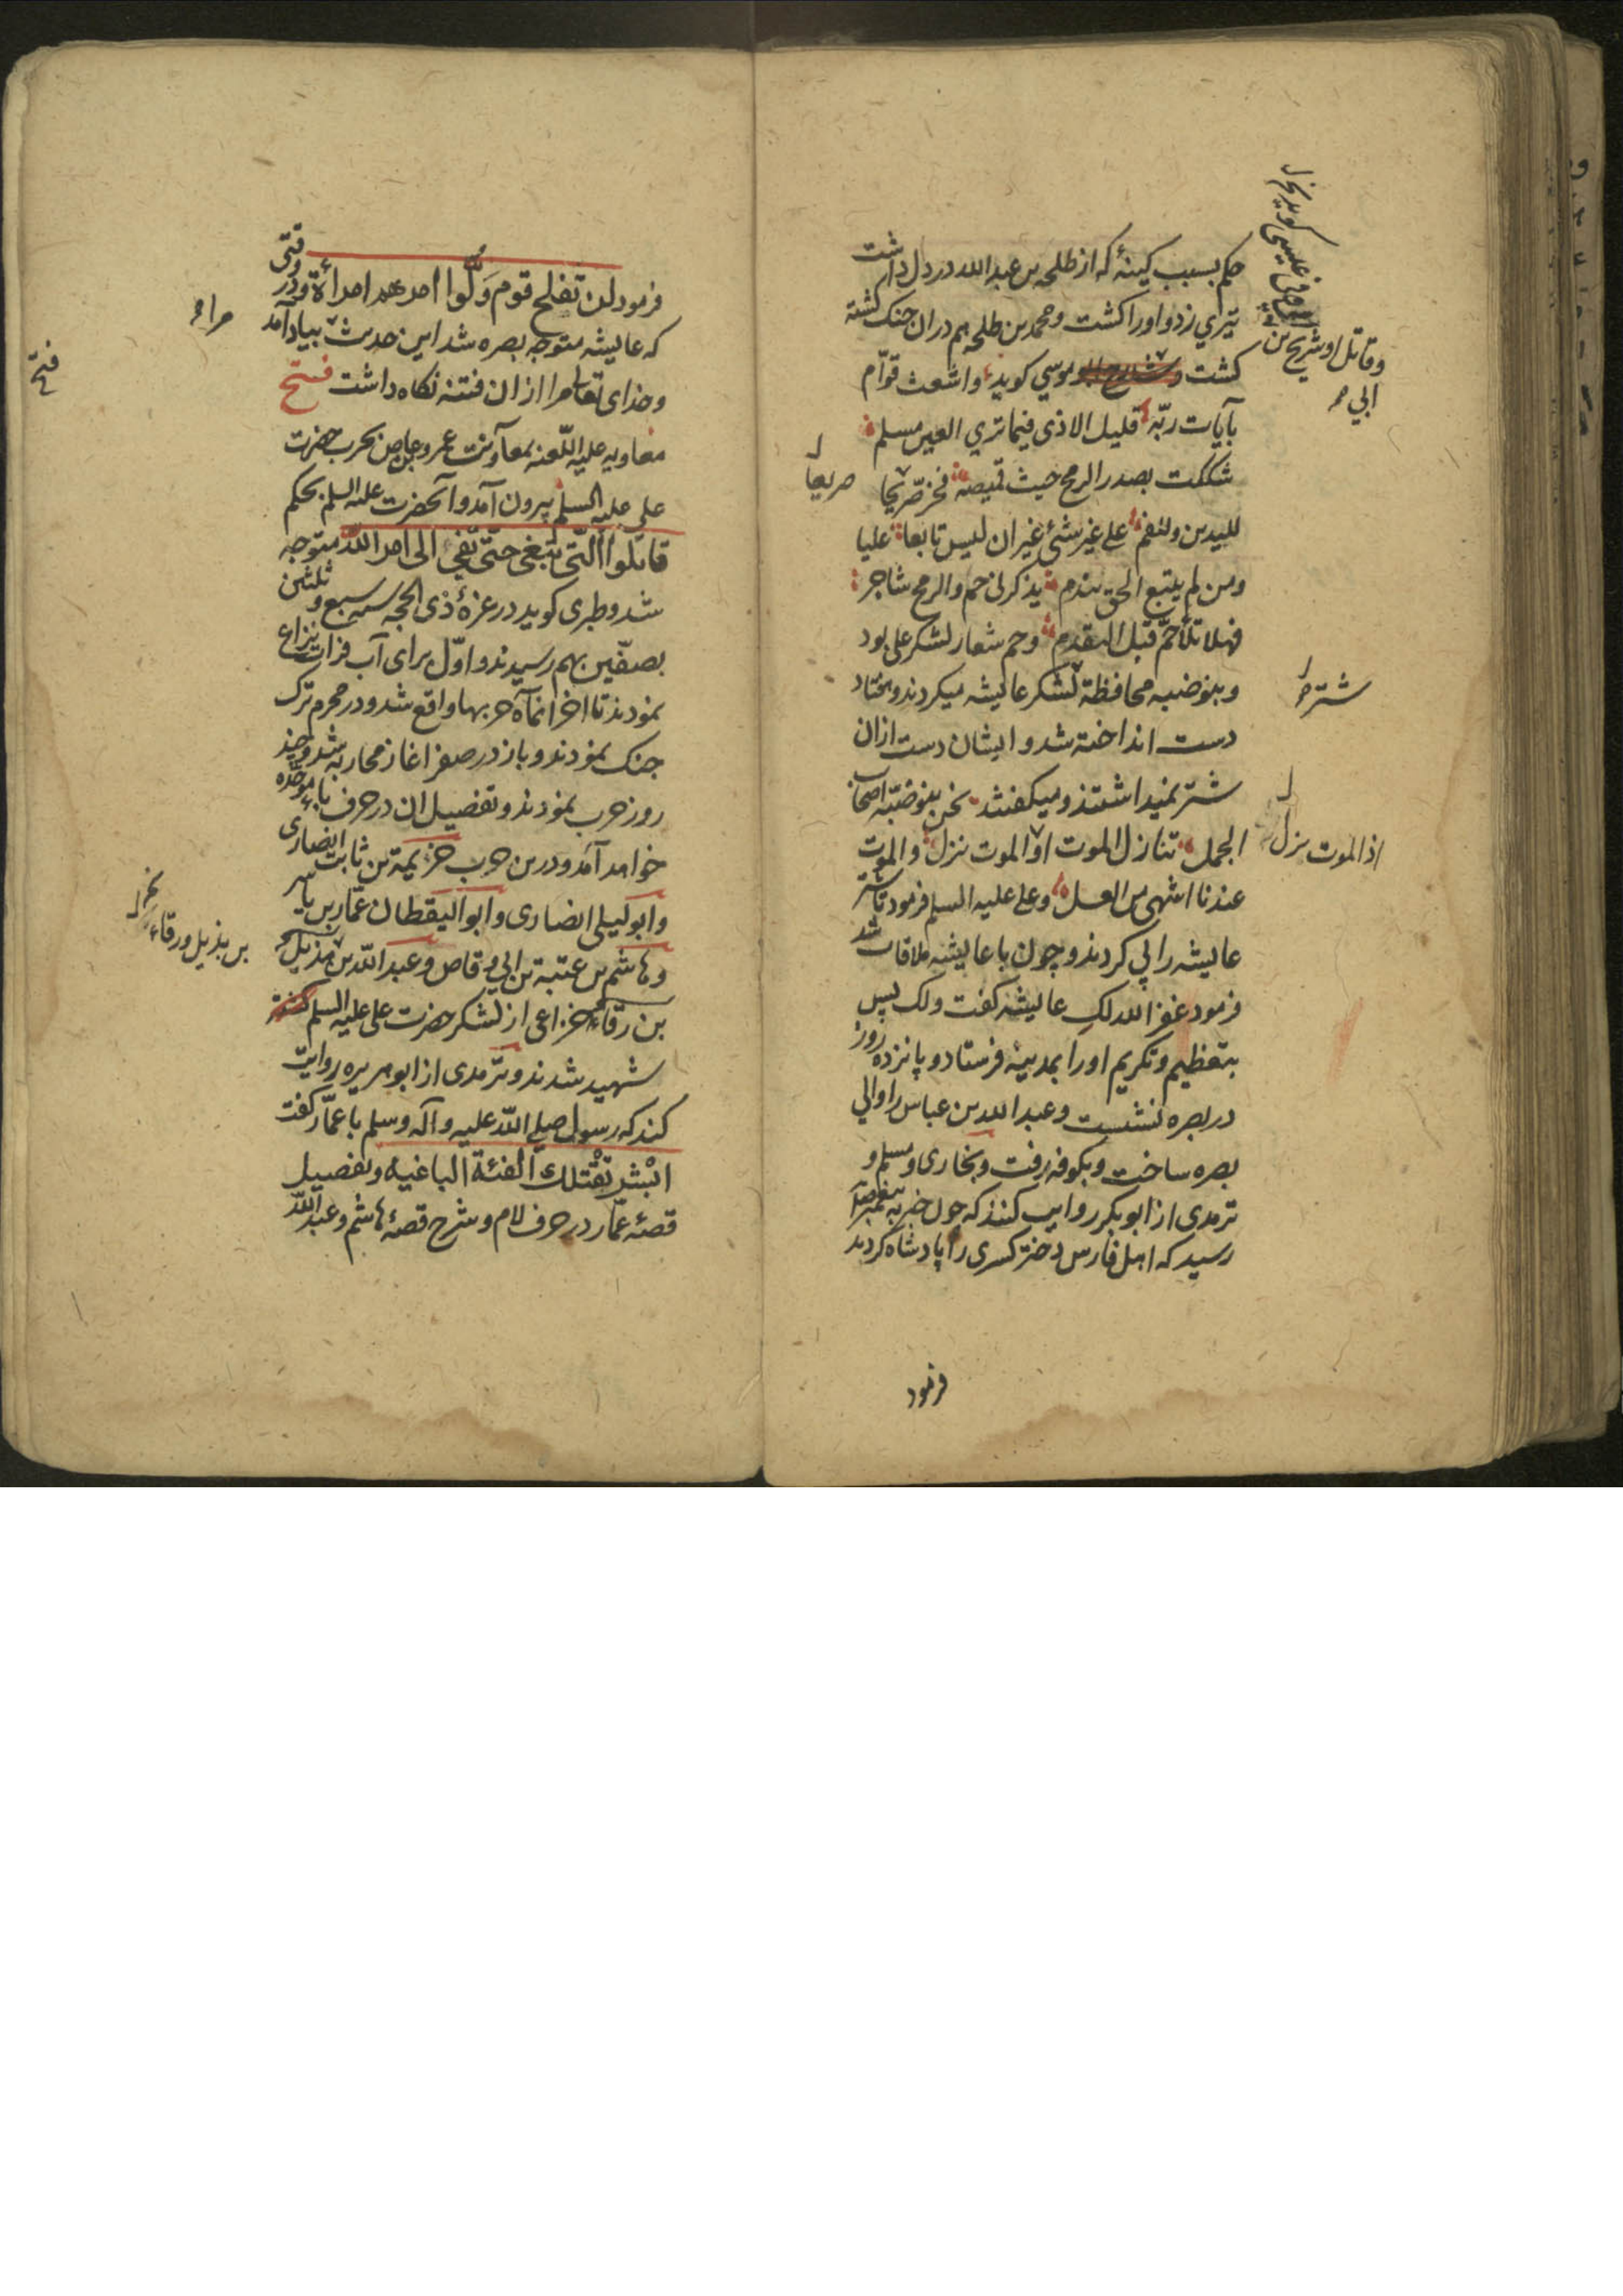 حکم بسبب کینهٔ که از طلحه بن عبدالله در دل داشت
تیری زد و او را کشت و محمد بن طلحه هم دران جنک کشته
کشت موسی کوید واشعث قوّام
بآیات ربّه قلیل الاذی فیما تری العین مسلم
شککت بصدر الرمح حیث قمیصه فخرّ صریحا
للیدین وللفم علی غیر شئ غیر ان لیس تابعا علیا
ومن لم یتبع الحق یندم یذکرنی حم والرمح شاجر
فهلا تلا حمّ قبل التقدم وحم شعار لشکر علی بود
وبنو ضبه محافظة لشکر عایشه میکردند وهفتاد
دست انداخته شد و ایشان دست ازان
شتر نمیداشتند ومیکفتند نحن بنو ضبّه اصحاب
الجمل تنازل الموت او الموت نزل والموت
عندنا اشهی من العسل وعلی علیه السلم فرمود تا شتر
عایشه را پی کردند و چون با عایشه ملاقات شد
فرمود غفر الله لکِ عایشه کفت ولک پس
بتعظیم وتکریم او را بمدینه فرستاد و پانزده روز
در بصره نشست وعبدالله بن عباس را والی
بصره ساخت وبکوفه رفت وبخاری ومسلم و
ترمدی از ابوبکر روایت کنند که چون خبر به پیغمبر
رسید که اهل فارس دختر کسری را پادشاه کردند
فرمود
وقاتل او شریح بن
ابی
صریعا
شتر
اذ الموت نزل
فرمود لن تفلح قوم ولّوا امرهم امرأة ودر وقتی
که عایشه متوجه بصره شد این حدیث بیاد آمد
وخدای تعالی مرا ازان فتنه نکاه داشت فتح
معاویه علیه اللّعنه بمعاونت عمرو بحرب حضرت
علی علیه السلم بیرون آمد وآنحضرت علیه السلم بحکم
قاتلوا الّتی تبغی حتّی تفئ الی امر الله متوجه
شد وطبری کوید در غرهٔ ذی الحجه سنه سبع و ثلثین
بصفّین بهم رسیدند و اوّل برای آب فرات نزاع
نمودند تا آخر انماه حربها واقع شد ودر محرم ترک
جنک نمودند وباز در صفر اغاز محاربه شد وچند
روز حرب نمودند وتفصیل ان در حرف باء موحّده
خواهد آمد ودرین حرب خزیمة بن ثابت انصاری
وابو لیلی انصاری وابو الیقظان عمّار بن یاسر
وهاشم بن عتبة بن ابی وقاص وعبدالله بن هذیل
بن رقاء خزاعی از لشکر حضرت علی علیه السلم
شهید شدند وترمدی از ابوهریره روایت
کند که رسول صلی الله علیه وآله وسلم با عمّار کفت
ابْشر تقْتلك الفئة الباغیه وتفصیل
قصهٔ عمّار در حرف لام وشرح قصهٔ هاشم وعبدالله
فتح
بن بذیل ورقاء